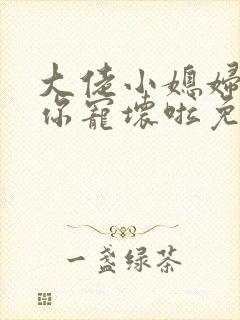 大佬小媳妇
你宠坏啦免
一盏绿茶